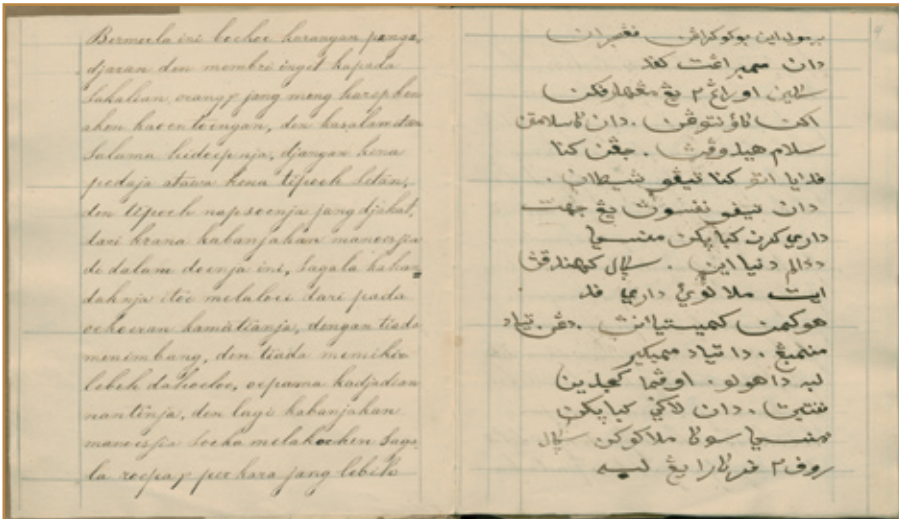 Bermoela ini boekoe karangan penga-
djaran den membri inget kapada
Sakalian orang² jang mengharepken
aken kaoentoengan, den kasalametan
Salama hidoepnja, djangan kena
pedaja atawa kena tipoeh setan,
den tipoeh napsoenja jang djahat,
dari krana kabanjakan manoesia
de dalam doenja ini, Sagala kahan-
daknja itoe melaloei dari pada
oekoeran kamatianja, dengan tiada
menimbang, den tiada memikir
lebeh dahoeloe, oepama kadjadian
nantinja, den lagi kabanjakan
manoesia Soeka melakoeken Saga-
la roepa² perkara jang lebih
برمول اين بوكو كراڠن ڤڠاجران
دان ممبر اڠت كڤد
سكلين اورڠ ٢ يڠ مڠهارفكن
اكن كاؤنتوڠن . دان كاسلامتن
سلام هيدوڤڽ . جاڠن كنا
ڤدايا اتو كنا تيڤو شيطان .
دان تيڤو نفسوڽ يڠ جهت
داري كرن كباڽكن منسي
دالم دنيا اين . سڬال كهندقڽ
ايت ملالوئي داري ڤد
دڠن تياد
منمبڠ . دا تياد مميكير
لبه داهولو . اوڤما كجدين
ننتيڽ . دان لاڬي كباڽكن
منسي سوك ملاكوكن سڬال
روڤ ٢ ڤركارا يڠ لبيه